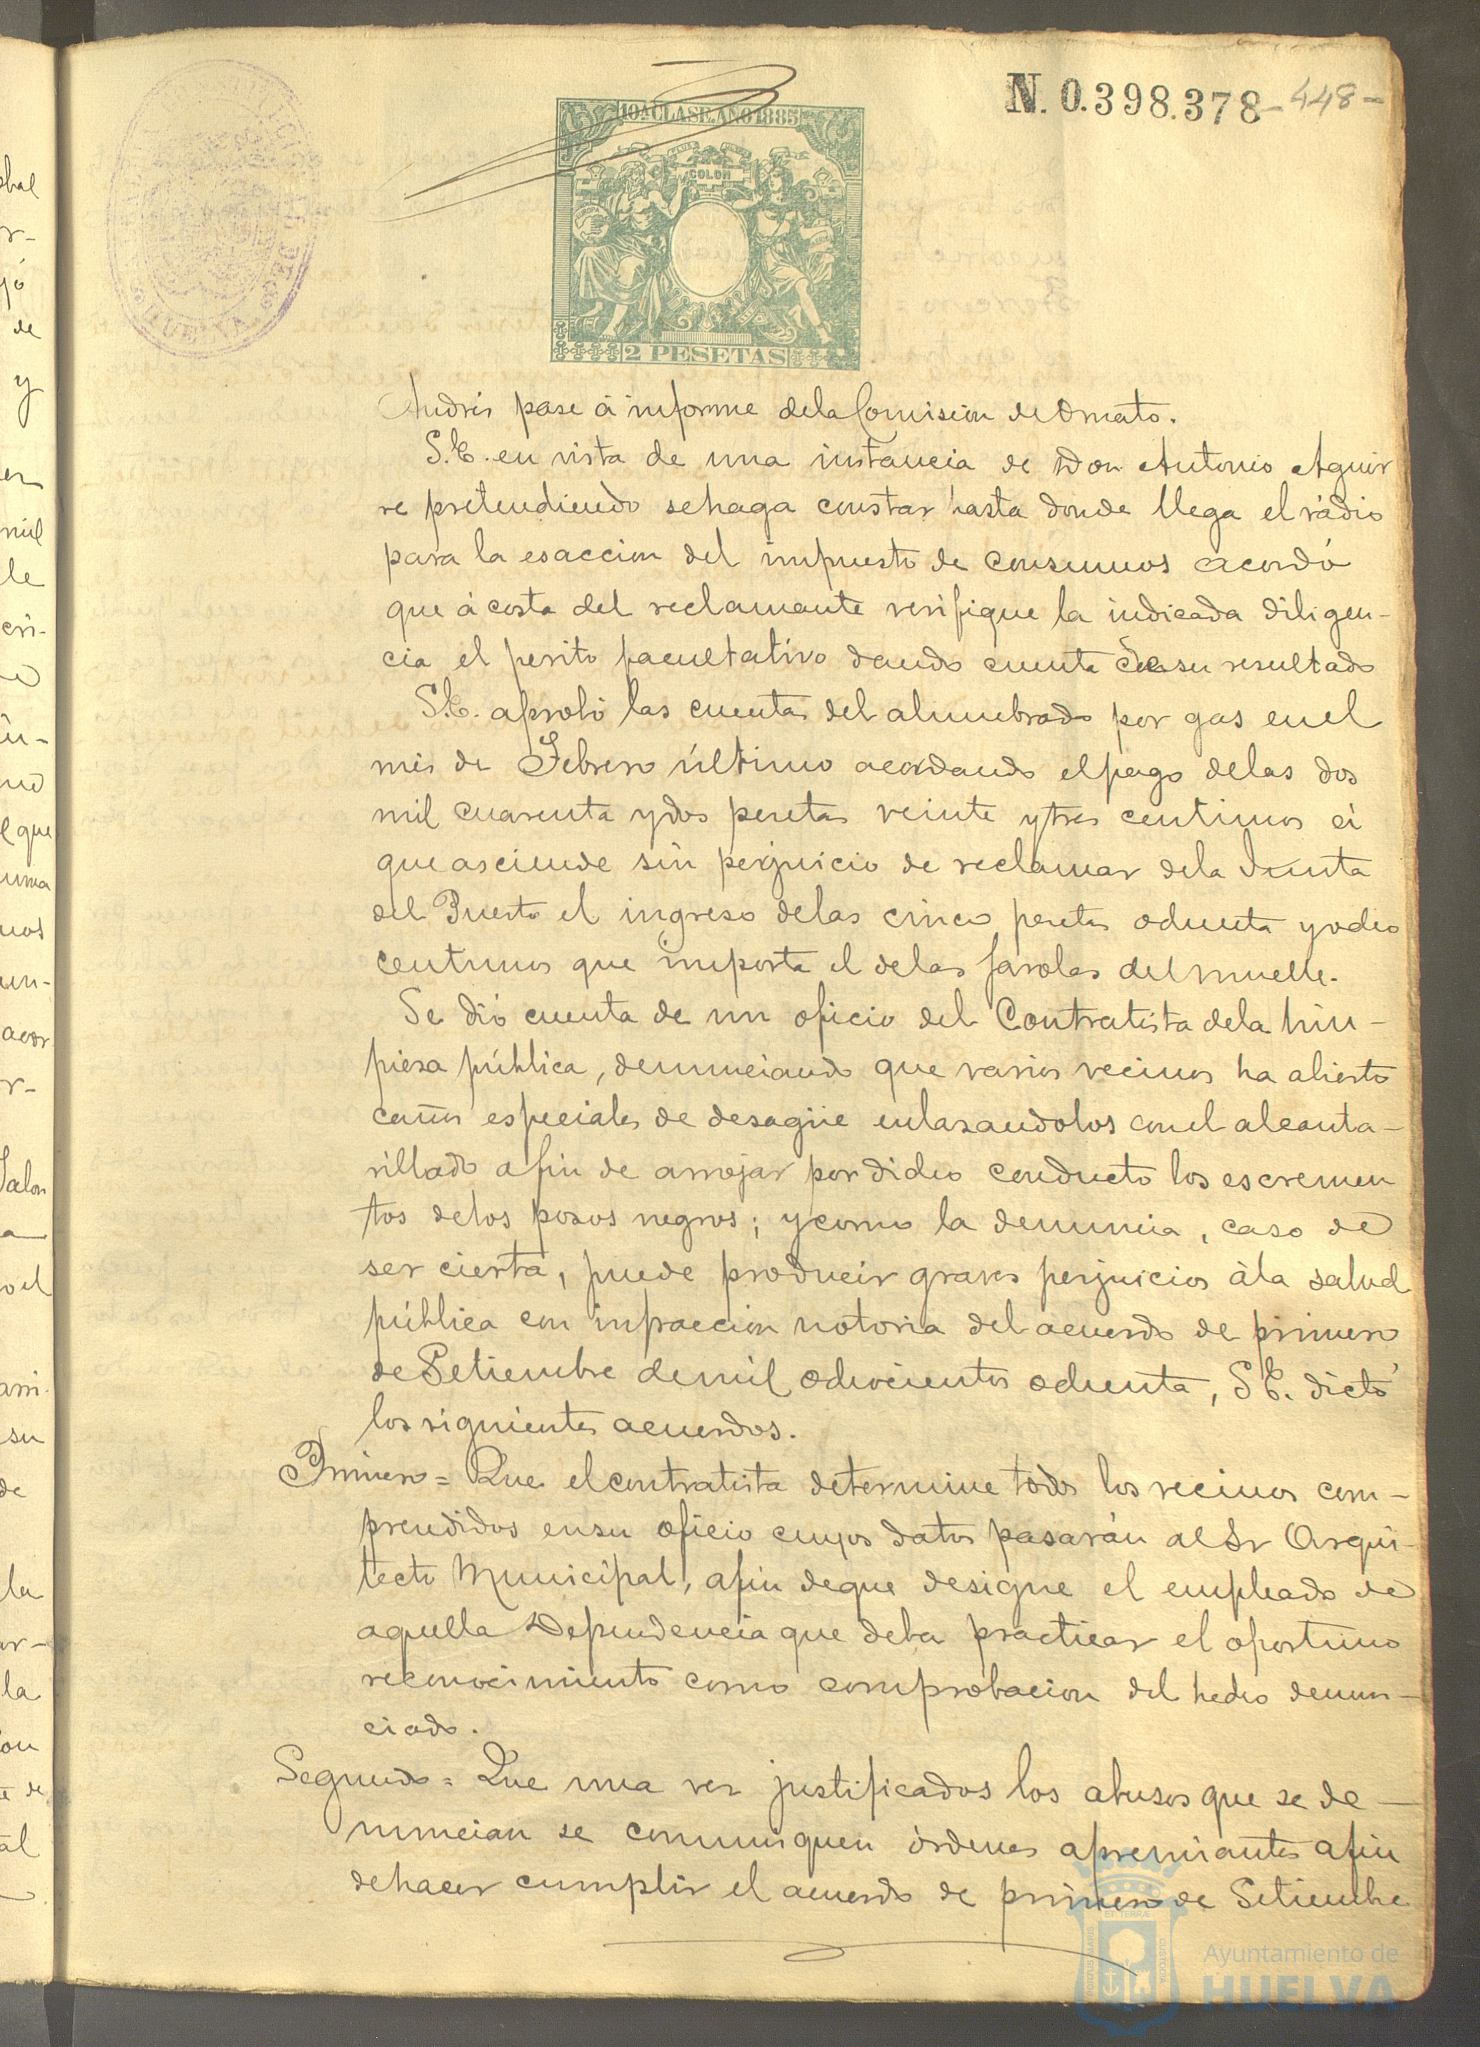 N. 0.398.378 - 448 -
10A CLASE. AÑO 1885
COLON
2 PESETAS
HUELVA
Andrés pase á informe dela Comisión de Ornato.
S.E. en vista de una instancia de Don Antonio Aguir
re pretendiendo sehaga constar hasta donde llega el rádio
para la esaccion del impuesto de consumos acordó
que á costa del reclamante verifique la indicada diligen-
cia el perito facultativo dando cuenta de su resultado
S.E. aprobó las cuentas del alumbrado por gas enel
mes de Febrero último acordando elpago delas dos
mil cuarenta ydos pesetas veinte ytres centimos á
que asciende sin perjuicio de reclamar dela Junta
del Puerto el ingreso delas cinco pesetas ochenta yocho
centimos que importa el delas farolas del muelle.
Se dió cuenta de un oficio del Contratista dela lim-
piesa pública, denunciando que varios vecinos ha abierto
caños especiales de desagüe enlasandolos conel alcanta-
rillado afin de arrojar por dicho conducto los escremen
tos delos posos negros; ycomo la denuncia, caso de
ser cierta, puede producir graves perjuicios ála salud
pública con infraccion notoria del acuerdo de primero
de Setiembre demil ochocientos ochenta, S.E. dictó
los siguientes acuerdos.
Primero = Que elcontratista determine todos los vecinos com-
prendidos ensu oficio cuyos datos pasarán al Sr Arqui-
tecto Municipal, afin deque designe el empleado de
aquella Dependencia que deba practicar el oportuno
reconocimiento como comprobacion del hecho denun-
ciado.
Segundo = Que una ves justificados los abusos que se de-
nuncian se comuniquen órdenes apremiantes afin
dehacer cumplir el acuerdo de primero de Setiembre
Ayuntamiento de
HUELVA